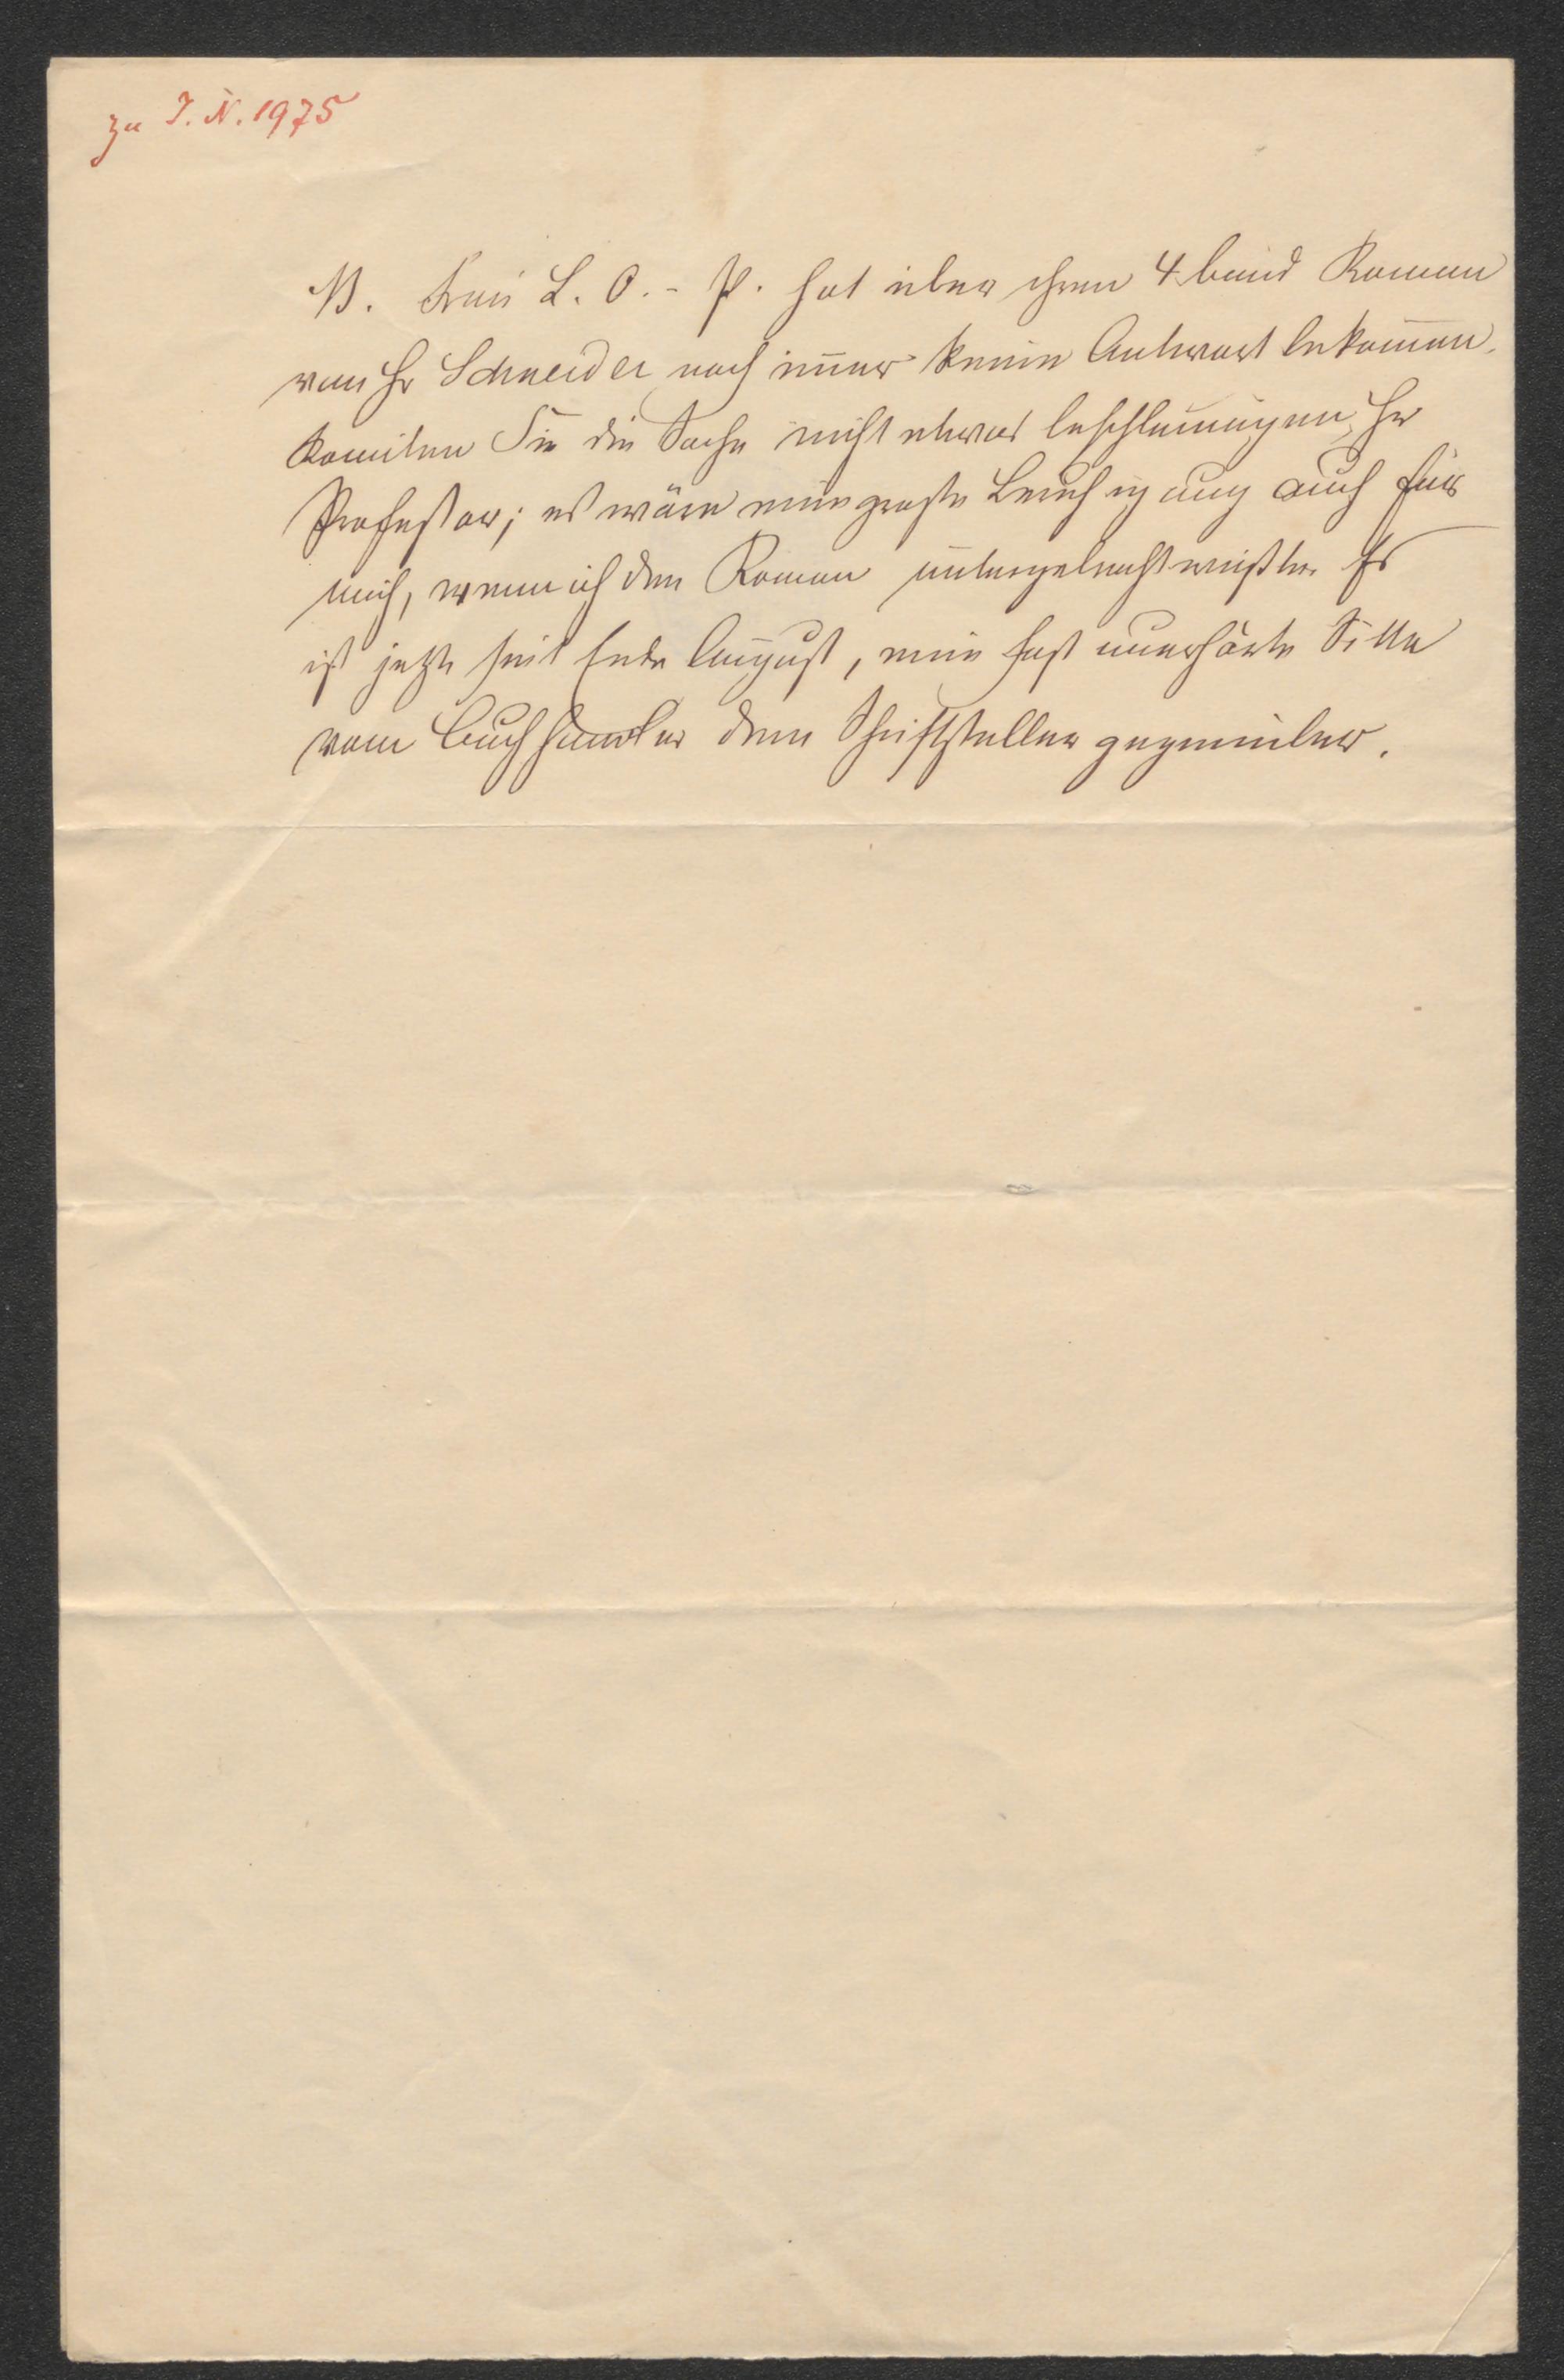 zu I. N. 1975
NB. Frau L. O.-P. hat über ihren 4 bänd Roman
von Hr Schneider noch im̅er keine Antwort bekom̅en.
Kön̅ten Sie die Sache nicht etwas beschleunigen, Hr
Professor; es wäre eine grosse Beruhigung auch für
mich, wenn ich den Roman untergebracht wüsste. Es
ist jetzt seit Ende August, eine fast unerhörte Sitte
vom Buchhändler dem Schriftsteller gegenüber.